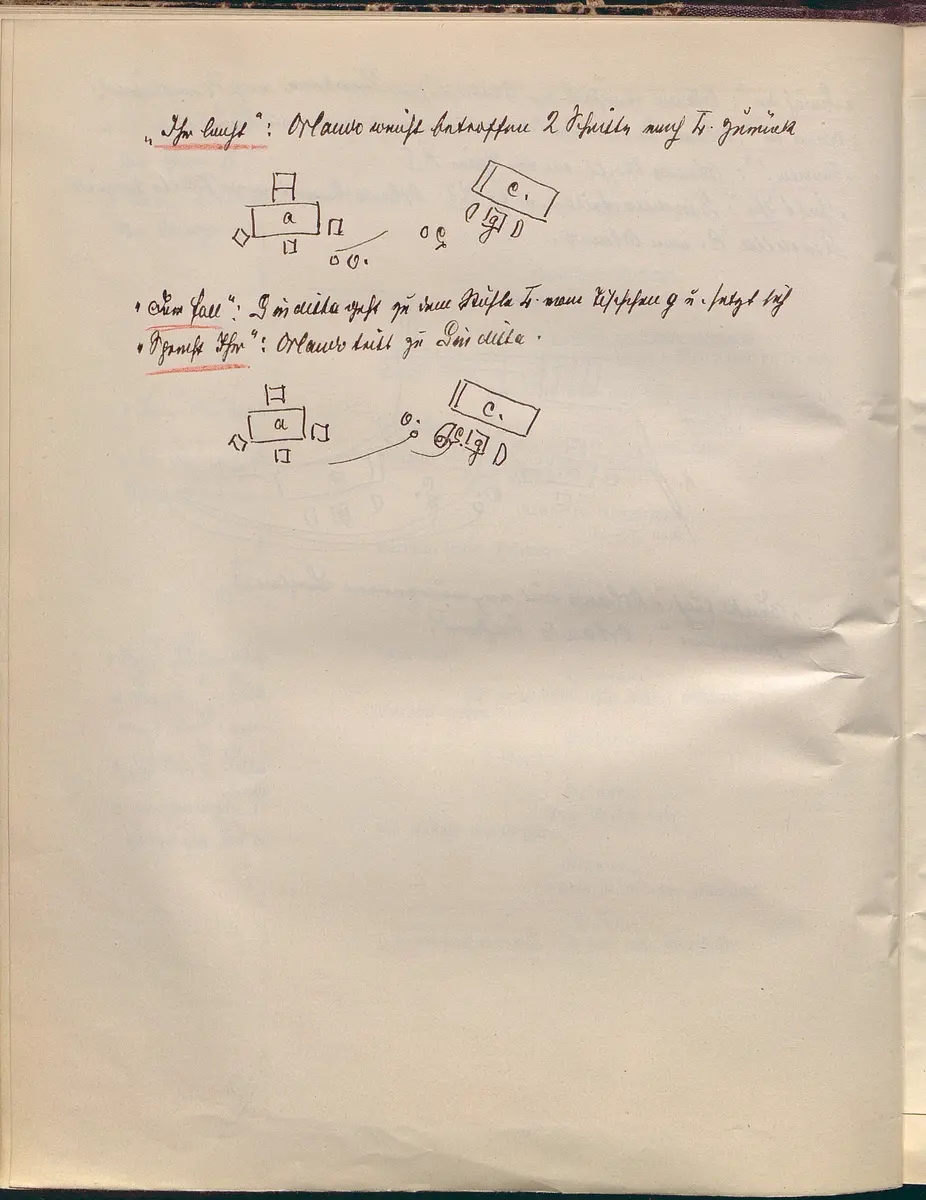 „Ihr lacht“: Orlando weicht betroffen 2 Schritte nach L. zurück
a
c.
g
o.
"Der Fall": Giuditta geht zu dem Stuhle L. vom Tischchen g u. setzt sich
"Sprecht Ihr": Orlando tritt zu Giuditta.
a
o.
c.
g